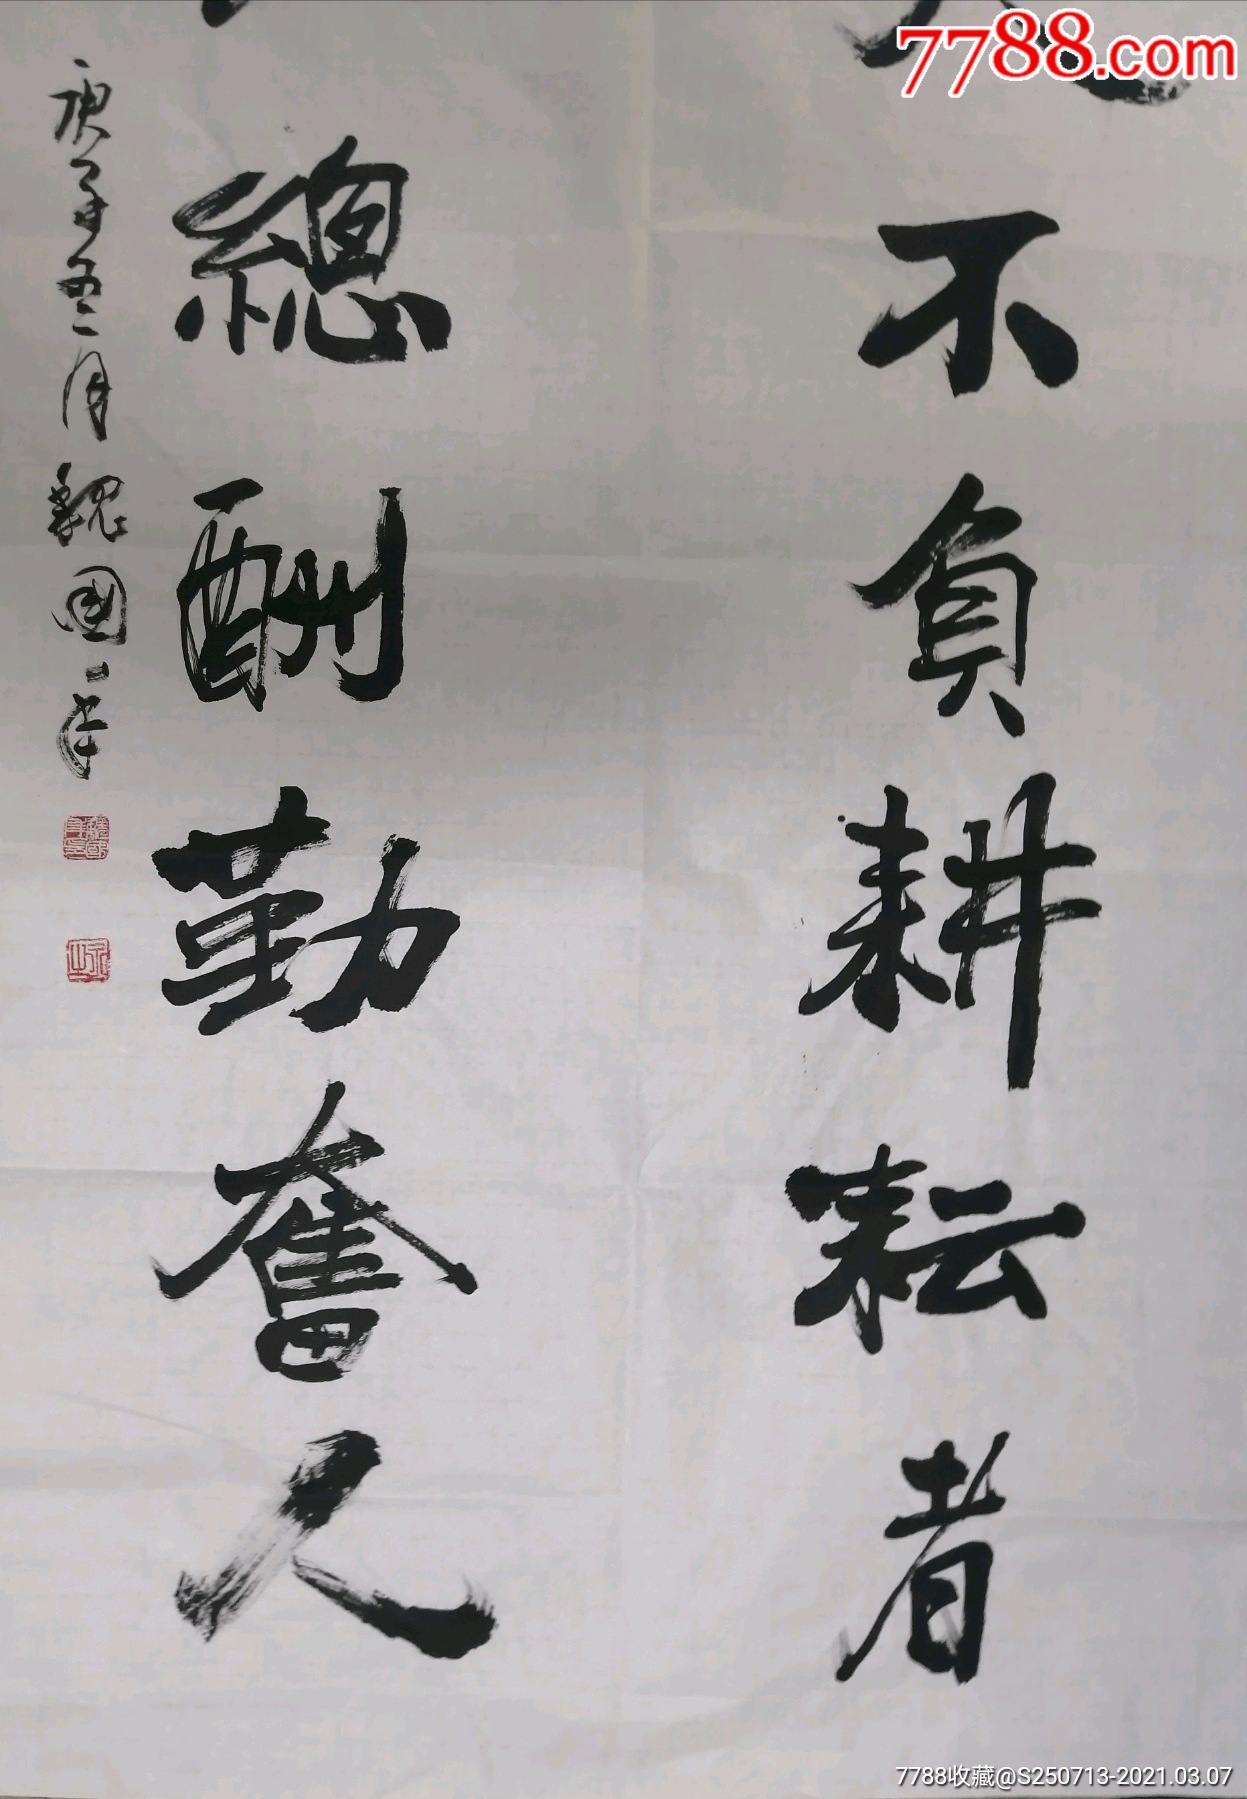 不負耕耘者
總酬勤奮人
庚子五月魏國平
7788.com
7788收藏@S250713-2021.03.07